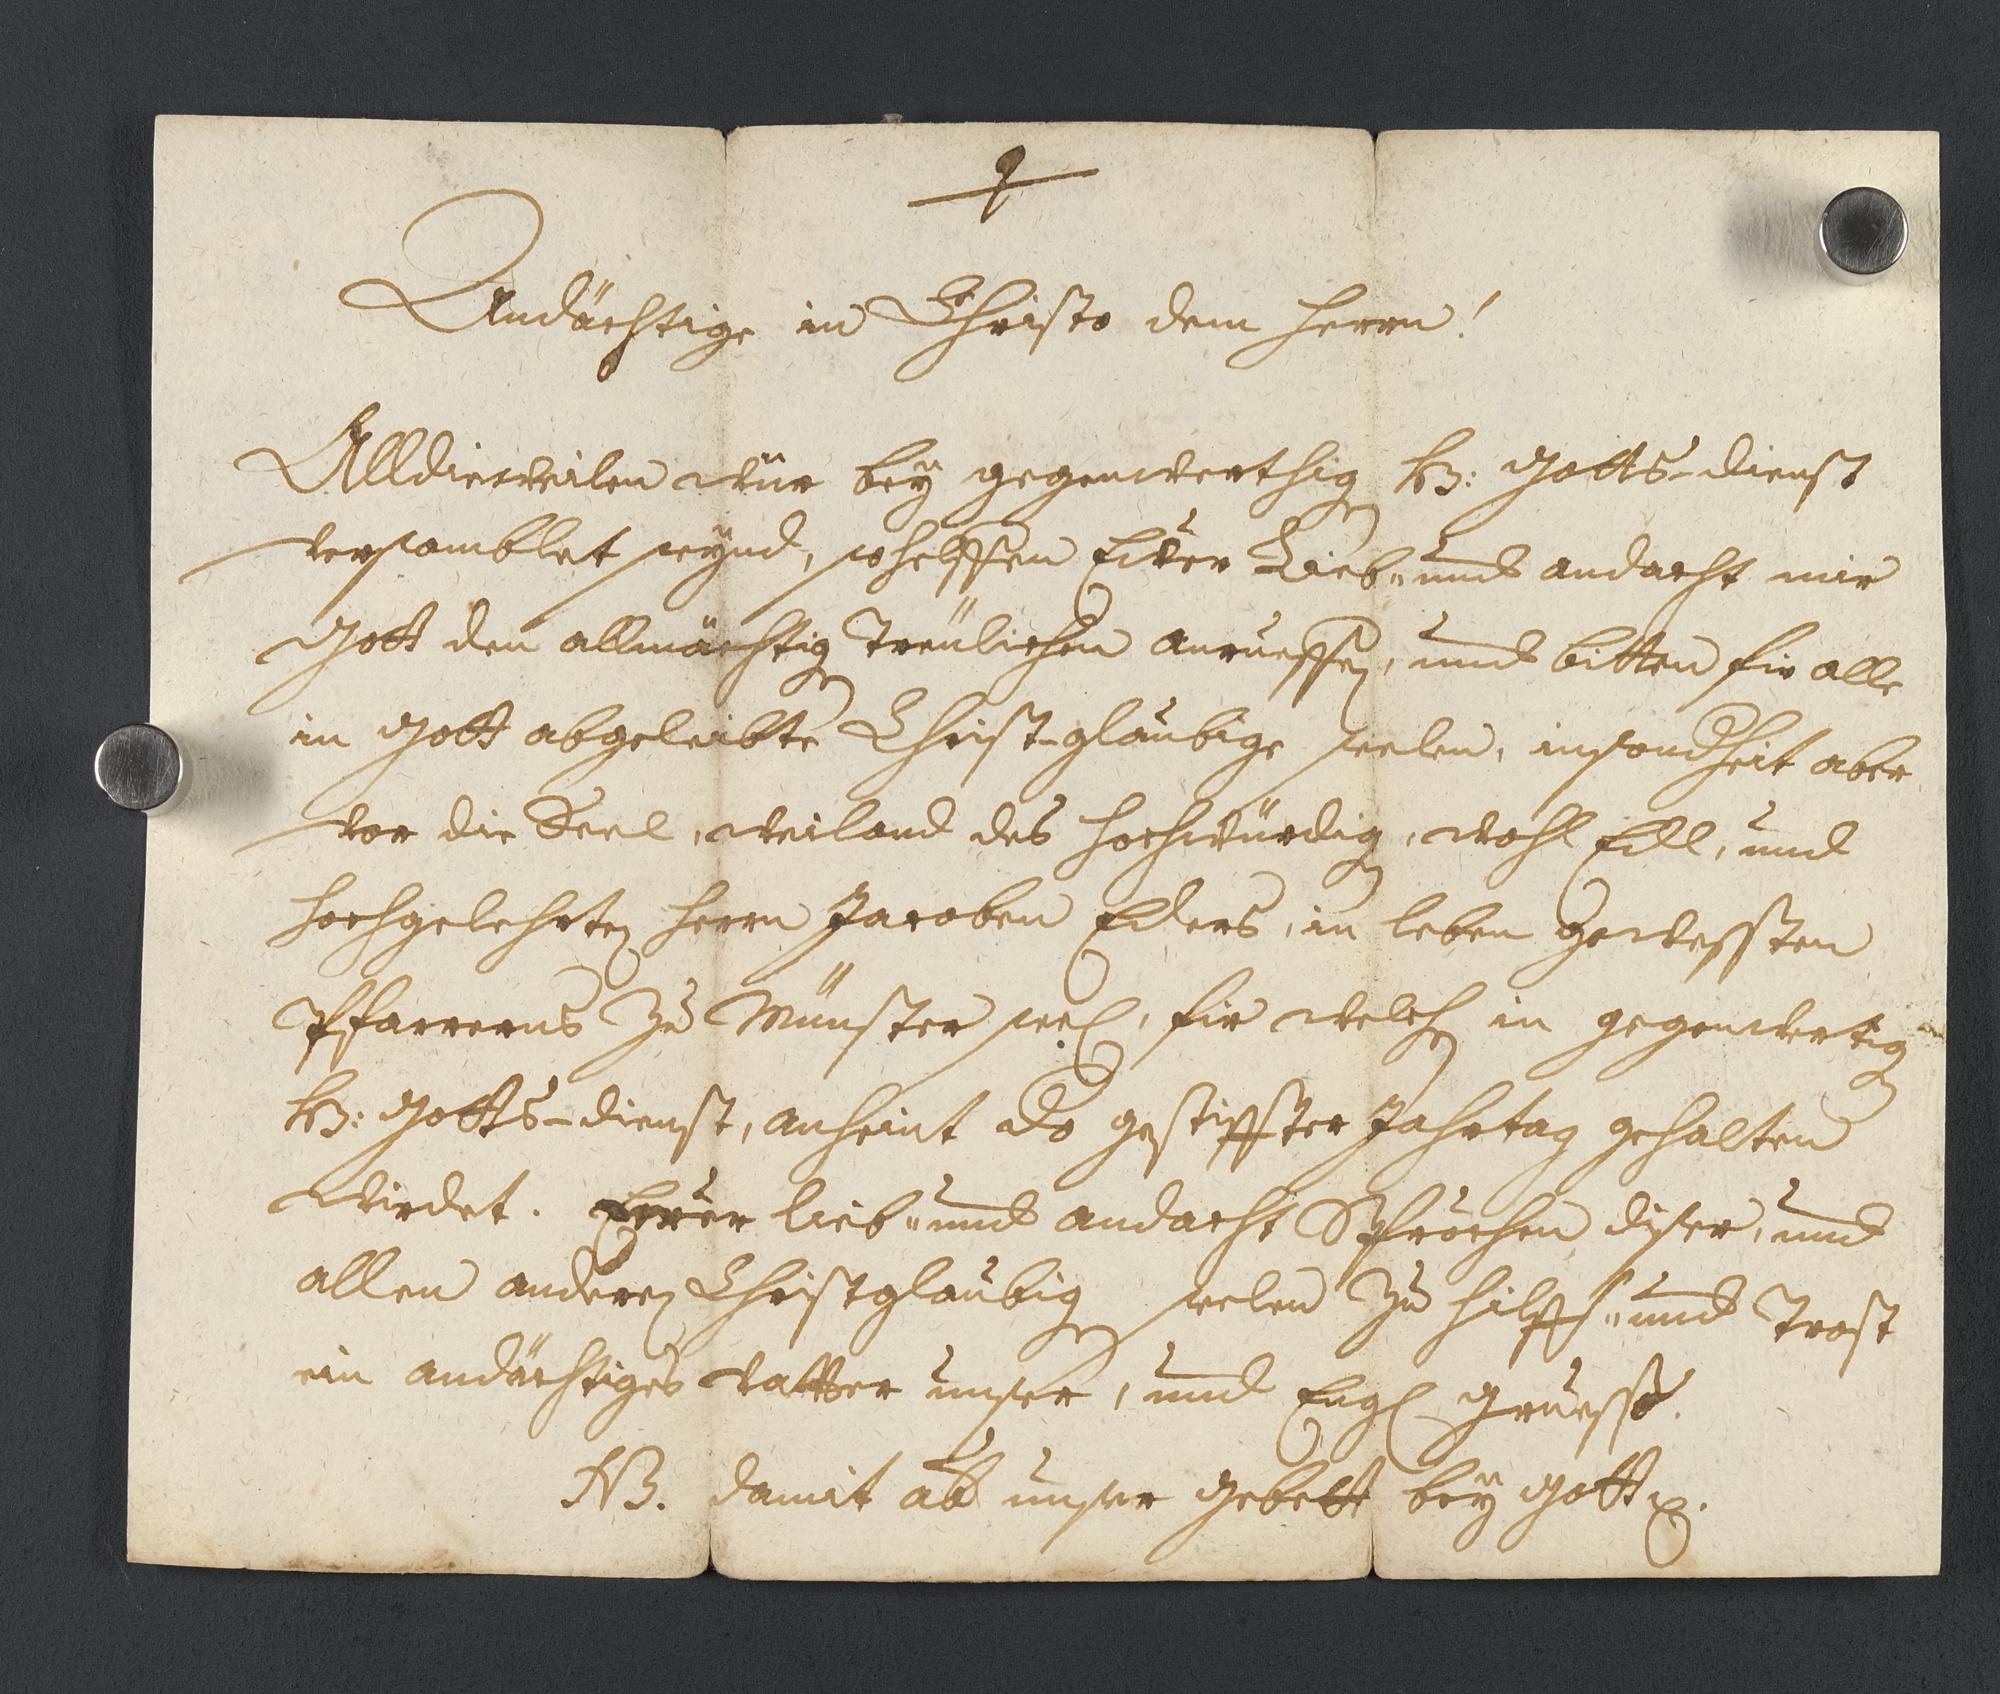 Andächtige in Christo dem Herrn!
Alldieweilen wür beÿ gegenwerthig hl: Gotts-dienst
versamblet seÿnd, so helffen Eüer Lieb- und andacht mir
Gott den allmächtig treülichen anrueffen, und bitten fir alle
in Gott abgeleibte Christ-glaubige seelen, insondheit aber
vor die Seel, weiland des hochwürdig, wohl Edl, und
hochgelehrten Herrn Jacoben Eders, in leben gewessten
Pfarrerns zu Münster seel, fir welchen in gegenwertig
hl: Gotts-dienst, anheint do gestiffter Jahrtag gehalten
wirdet. Eüer lieb- und andacht Sprechen diser, und
allen anderen Christglaubig seelen zu hilff- und trost
ein andächtiges vatter unser, und Engl Gruess.
NB. damit ab unser gebett beÿ Gott